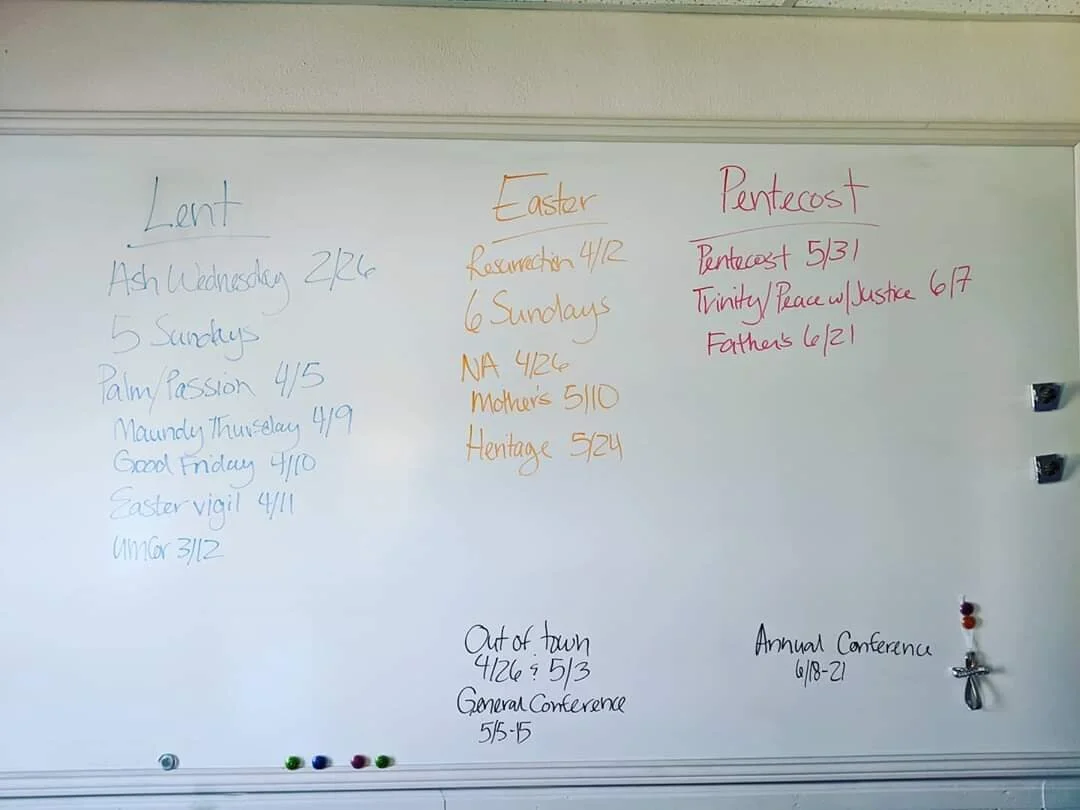 Lent
Ash Wednesday 2/26
5 Sundays
Palm/Passion 4/5
Maundy Thursday 4/9
Good Friday 4/10
Easter vigil 4/11
umcor 3/12
Easter
Resurrection 4/12
6 Sundays
NA 4/26
Mother's 5/10
Heritage 5/24
Pentecost
Pentecost 5/31
Trinity/Peace w/Justice 6/7
Father's 6/21
Out of town
4/26 & 5/3
General Conference
5/5-15
Annual Conference
6/18-21